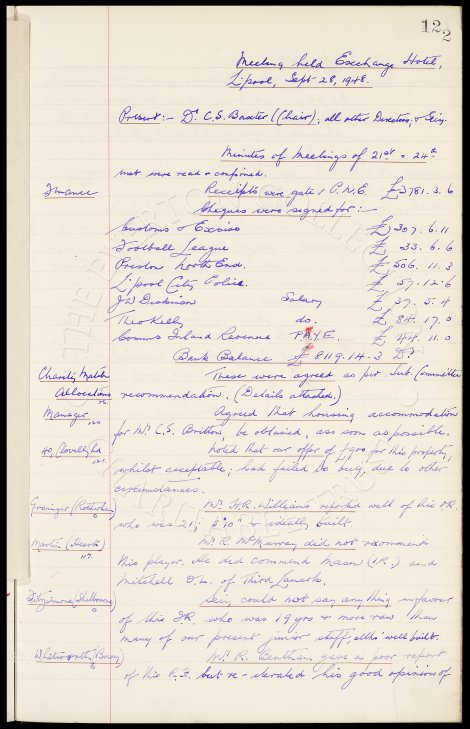 122
Meeting held Exchange Hotel,
L'pool, Sept 28, 1948.
Present:- Dr C.S. Baxter (Chair), all other Directors, & Secy.
Minutes of Meetings of 21st & 24th
inst were read & confirmed.
Finance Receipts were gate v P.N.E. £3781. 3. 6
Cheques were signed for:-
Customs & Excise £1307. 6. 11
Football League £ 33. 6. 6
Preston North End. £ 506. 11. 3
L'pool City Police. £ 57. 12. 6
J W Dickinson Salary £ 37. 5. 4
Theo Kelly do. £ 84. 17. 0
Comms Inland Revenue PAYE. £ 44. 11. 0
Bank Balance £ 8119. 14. 3 Dr
Charity Match These were agreed as per Sub. Committee
Allocations recommendation. (Details attached.)
Manager Agreed that housing accommodation
120
for Mr C.S. Britton be obtained, as soon as possible.
40, Clovelly Rd Noted that our offer of £ for this property,
121
whilst acceptable; had failed to buy, due to other
circumstances.
Grainger (Rotherham) Mr. W.R. Williams reported well of this
who was 21; 5'10" & ideally built.
Martin (Hearts) Mr. R. McMurray did not recommend
117
this player. He did commend Mason (I.R.) and
Mitchell O.L. of Third Lanark.
Fitzsimons (Shelbourne) Secy. could not say anything in favour
of this who was 19 yrs & more raw than
many of our present junior staff, altho' well built.
Whitworth (Bury) Mr. R. Bentham gave a poor report
of this but re-iterated his good opinion of